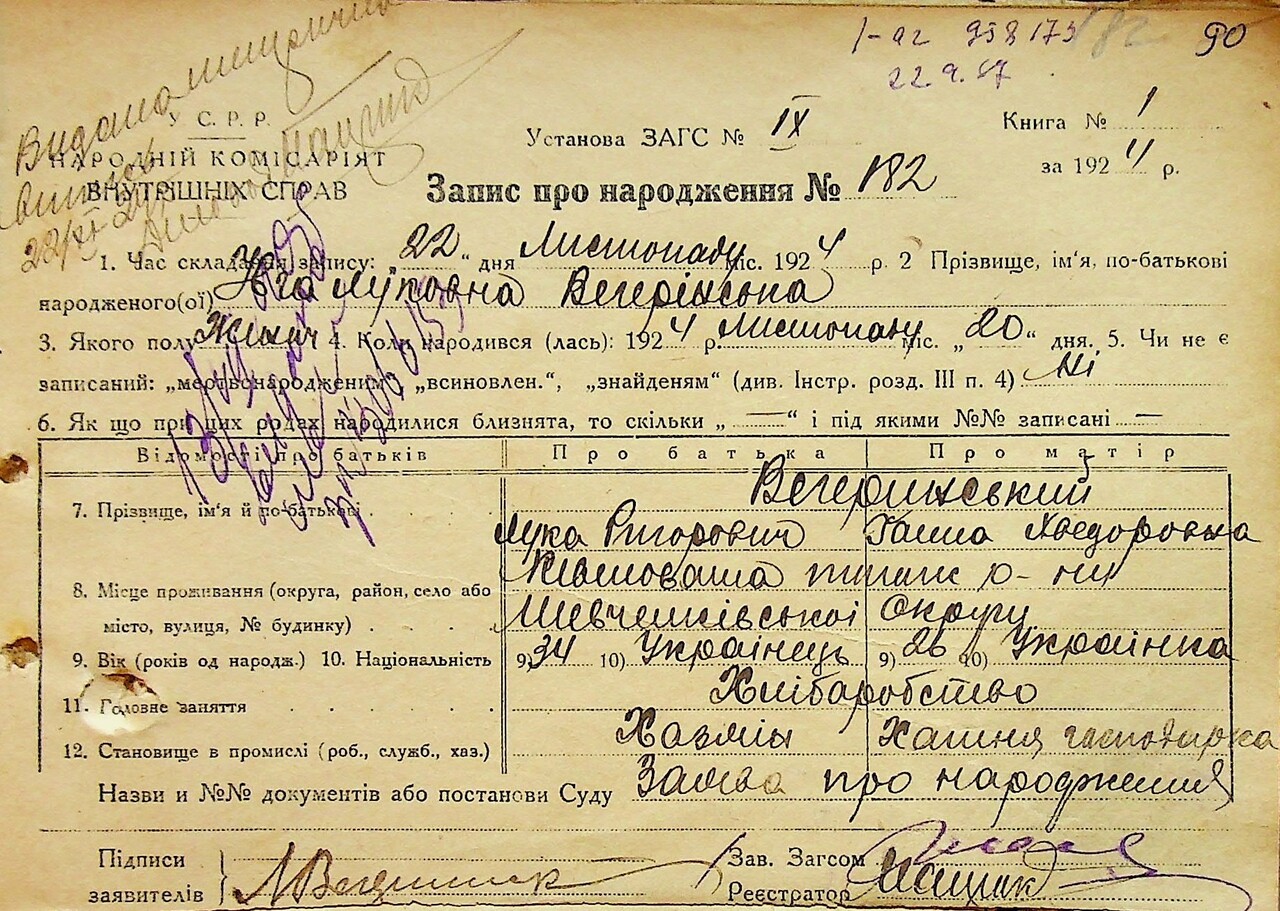 1-аг 958173 182 90
22.9.67
Видано
У С. Р. Р.
НАРОДНІЙ КОМІСАРІЯТ
ВНУТРІШНІХ СПРАВ
Установа ЗАГС № ІХ
Книга № 1
за 1924 р.
Запис про народження № 182
1. Час складання запису: 22 " дня Листопаду міс. 1924 р. 2 Прізвище, ім'я, по-батькові
народженого(ої) Луковна Вегерінська
3. Якого полу Жіноч 4. Коли народився (лась): 1924 р. Листопаду міс. „ 20 " дня. 5. Чи не є
записаний: „мертвонародженим", „всиновлен.", „знайденям" (див. Інстр. розд. III п. 4) Ні
6. Як що при цих родах народилися близнята, то скільки „ — " і під якими №№ записані —
Відомості про батьків Про батька Про матір
Вегеринський
7. Прізвище, ім'я й по-батькові
Лука Ригорович Ганна Хведоровна
8. Місце проживання (округа, район, село або
місто, вулиця, № будинку)
Шевченківської Округу
9. Вік (років од народж.) 10. Національність 9) 34 10) Українець 9) 26 10) Українка
11. Головне заняття Хлібаробство
12. Становище в промислі (роб., служб., хаз.) Хазяїн Хатня господарка
Назви и №№ документів або постанови Суду Заява про народження
Підписи
заявителів
Зав. Загсом
Реєстратор